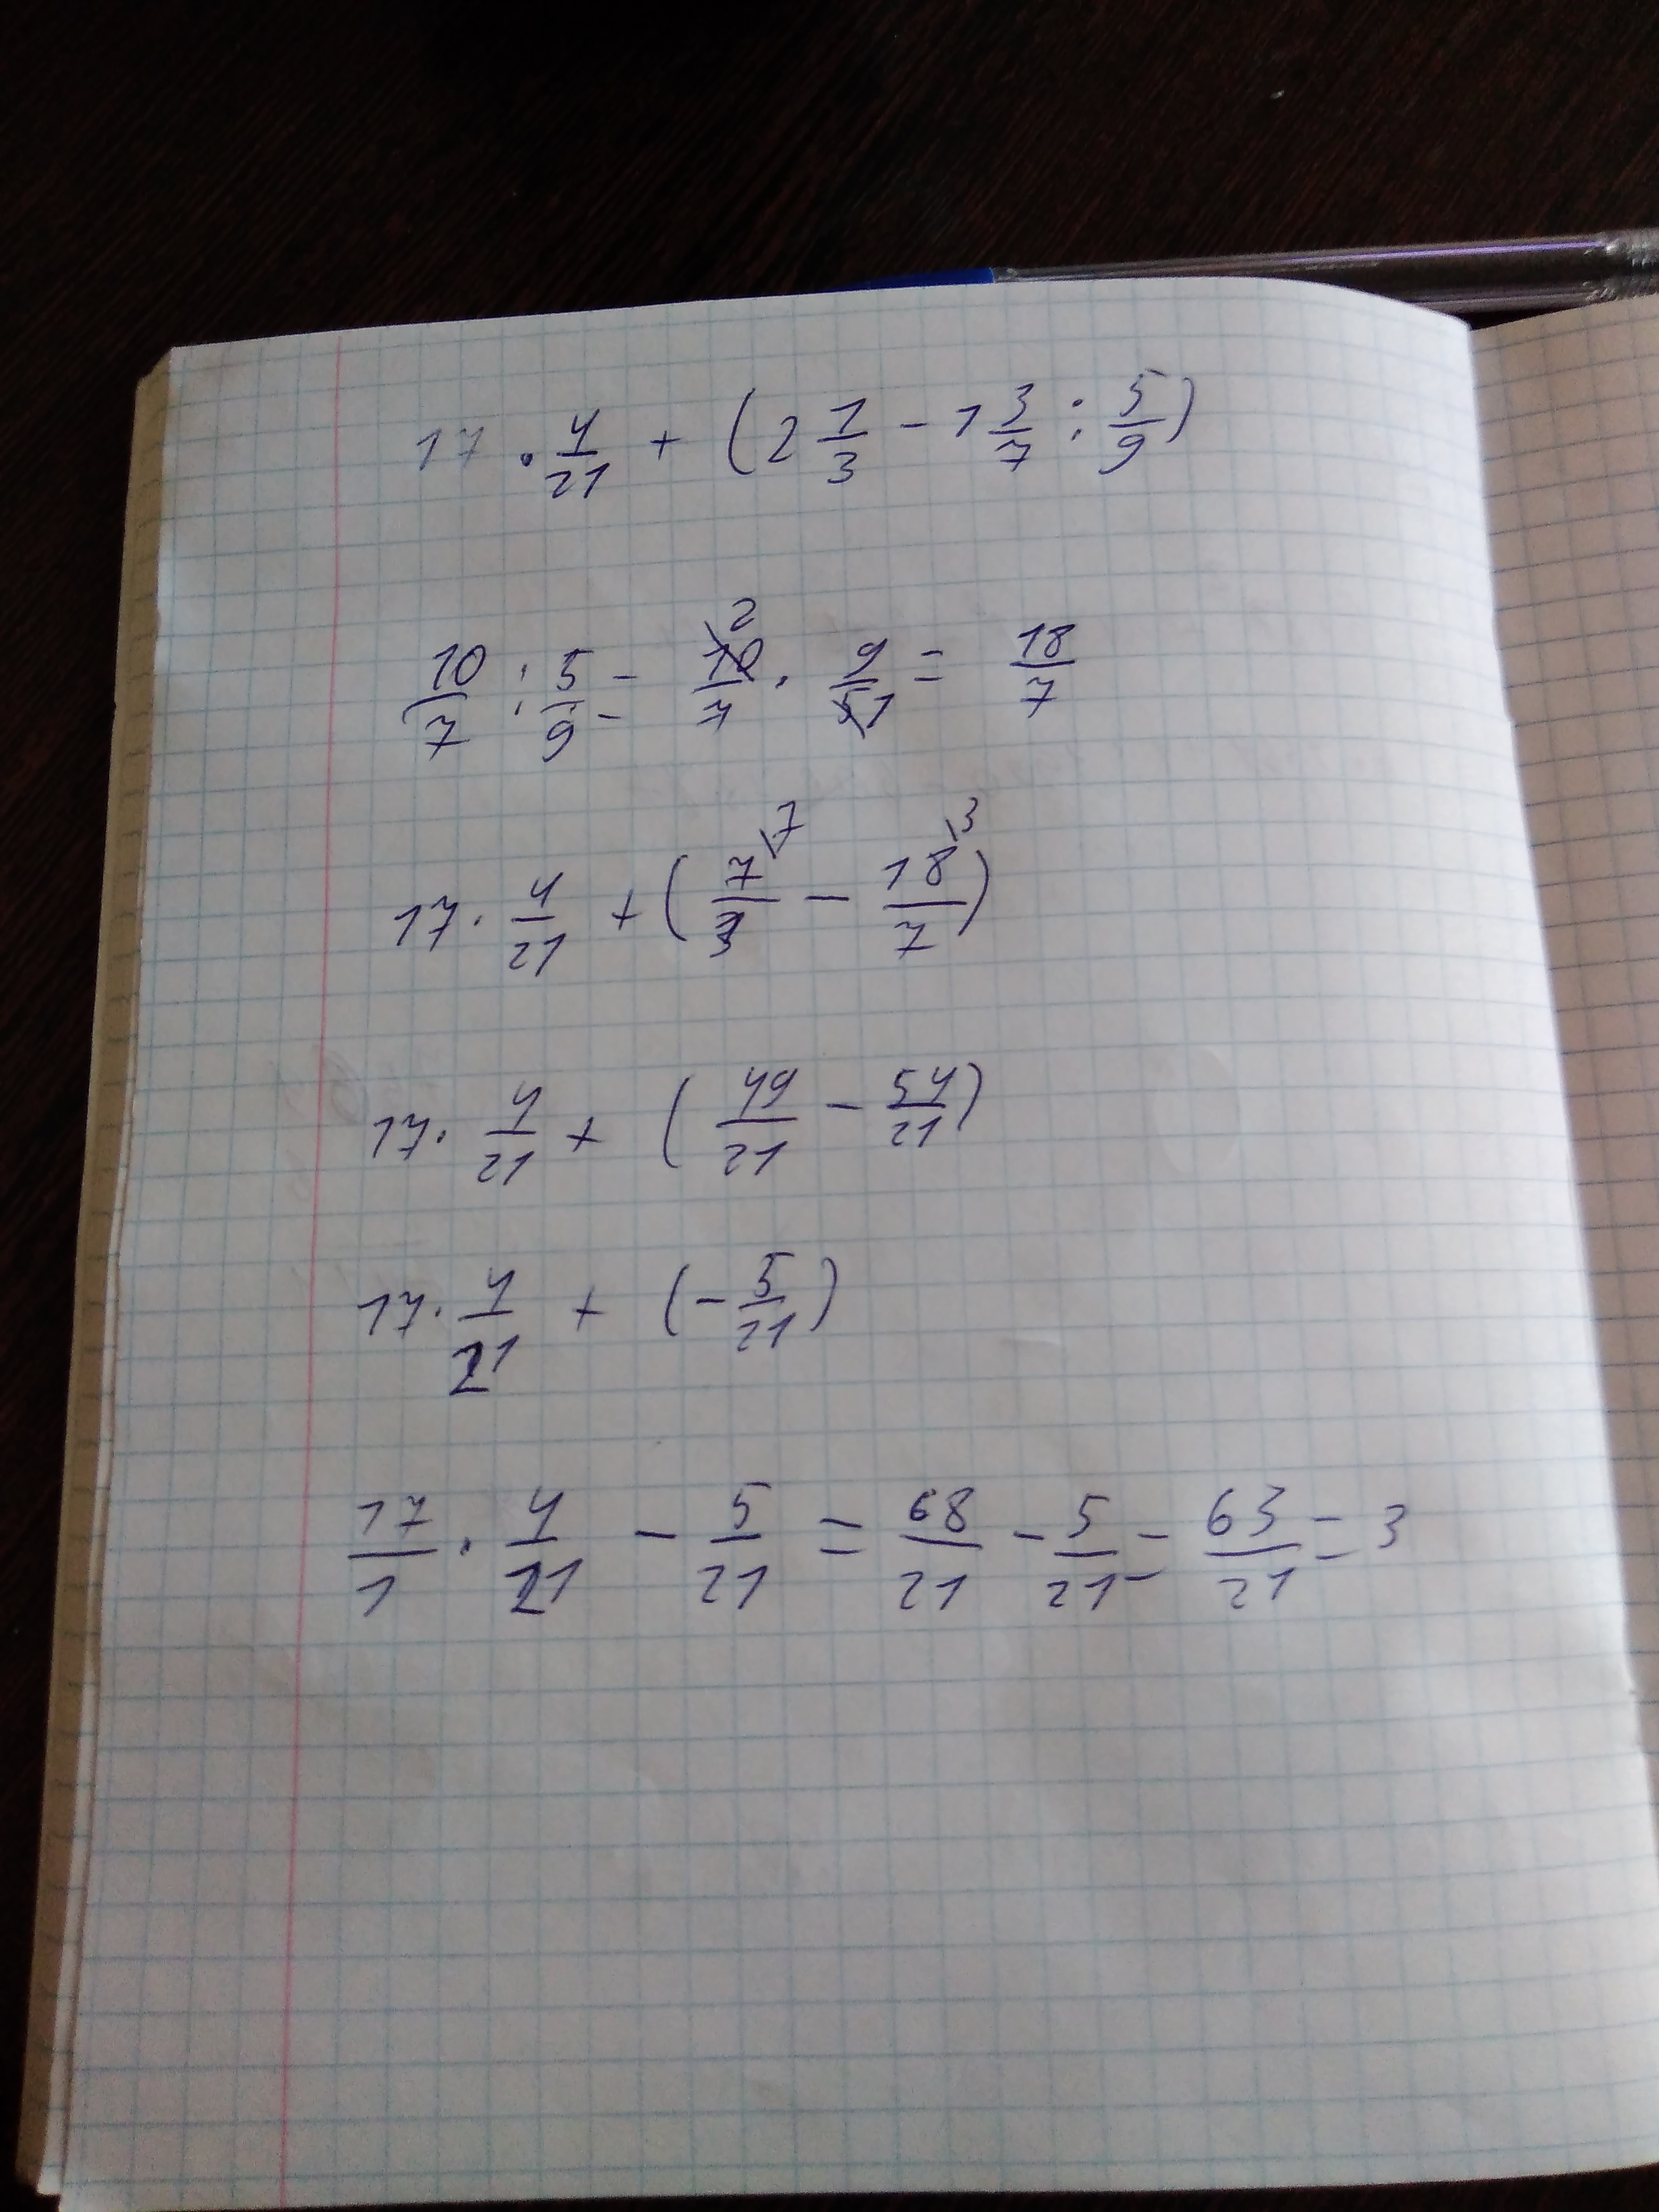 17 · 4/21 + (2 1/3 - 1 3/7 : 5/9)
10/7 : 5/9 = 10/7 2 · 9/5 1 = 18/7
17 · 4/21 + (7/3 \7 - 18/7 \3)
17 · 4/21 + (49/21 - 54/21)
17 · 4/21 + (- 5/21)
17/1 · 4/21 - 5/21 = 68/21 - 5/21 = 63/21 = 3